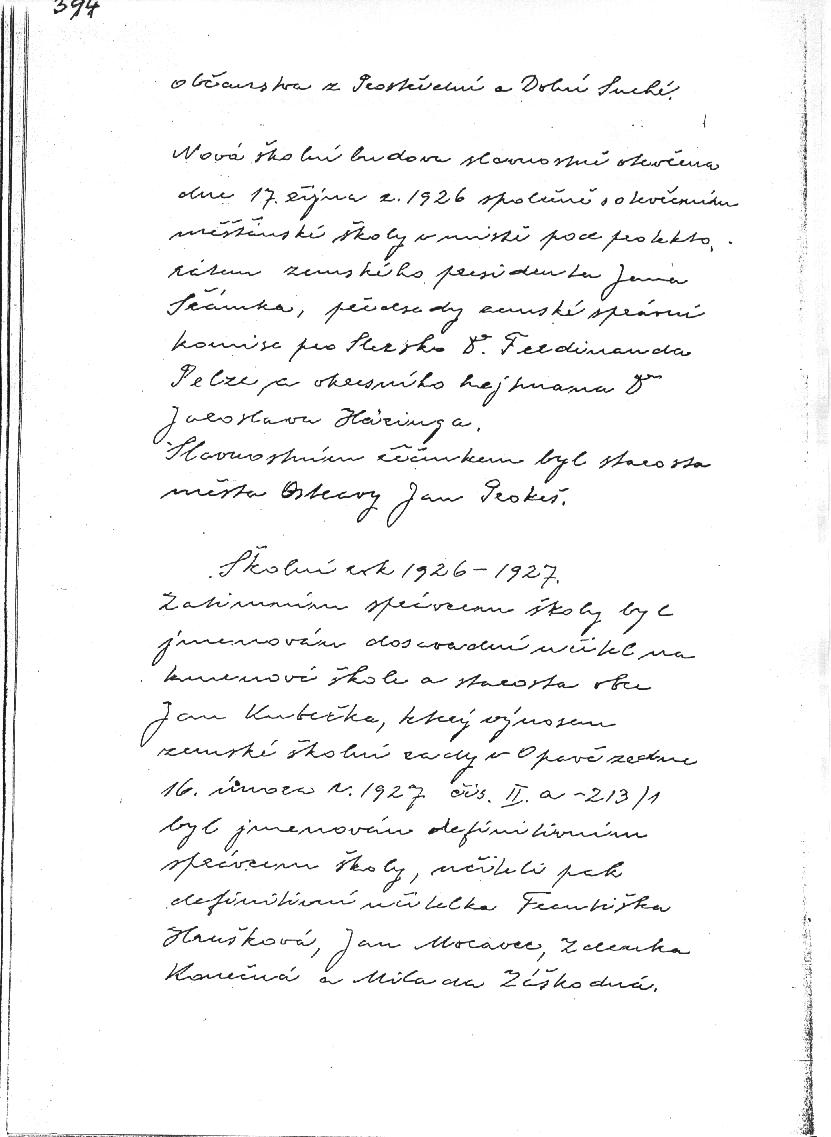 394
občanstva z Prostřední a Dolní Suché.
Nová školní budova slavnostně otevřena
dne 17. října r. 1926 společně s otevřením
měšťanské školy v místě pod protekto-
rátem zemského presidenta Jana
Šrámka, předsedy zemské správní
komise pro Slezsko Dr. Ferdinanda
Pelze, a okresního hejtmana Dr
Jaroslava Háringa.
Slavnostním řečníkem byl starosta
města Ostravy Jan Prokeš.
Školní rok 1926-1927.
Zatimním správcem školy byl
jmenován dosavadní učitel na
kmenové škole a starosta obce
Jan Kubečka, který výnosem
zemské školní rady v Opavě ze dne
16. února r. 1927 čís. II. a -213/1
byl jmenován definitivním
správcem školy, učiteli pak
definitivní učitelka Františka
Hrušková, Jan Moravec, Zdenka
Konečná a Milada Záškodná.